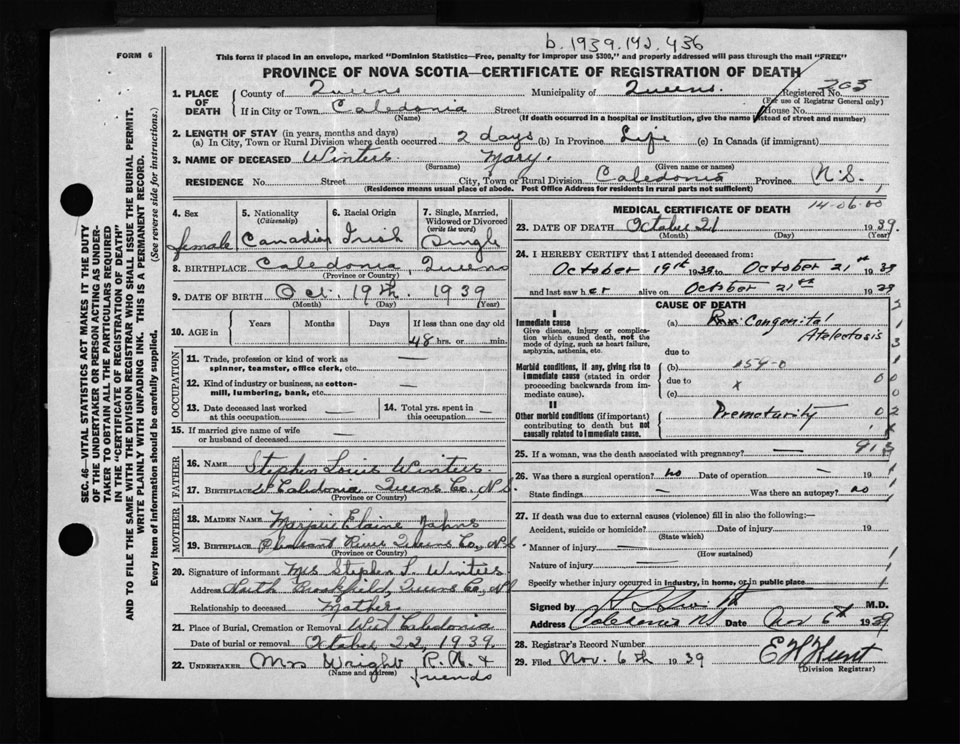 b. 1939. 142. 436
FORM 6
This form if placed in an envelope, marked "Dominion Statistics—Free, penalty for improper use $300," and properly addressed will pass through the mail "FREE"
PROVINCE OF NOVA SCOTIA—CERTIFICATE OF REGISTRATION OF DEATH
1. PLACE OF DEATH County of Queens Municipality of Queens. Registered No. 203
(For use of Registrar General only)
If in City or Town Caledonia Street House No.
(Name) (If death occurred in a hospital or institution, give the name instead of street and number)
2. LENGTH OF STAY (in years, months and days)
(a) In City, Town or Rural Division where death occurred 2 days (b) In Province Life (c) In Canada (if immigrant)
3. NAME OF DECEASED Winters. Mary.
(Surname) (Given name or names)
RESIDENCE No. Street City, Town or Rural Division Caledonia Province N.S.
(Residence means usual place of abode. Post Office Address for residents in rural parts not sufficient)
4. Sex female
5. Nationality (Citizenship) Canadian
6. Racial Origin Irish
7. Single, Married, Widowed or Divorced (write the word) Single
8. BIRTHPLACE Caledonia, Queens
(Province or Country)
9. DATE OF BIRTH Oct. 19th. 1939
(Month) (Day) (Year)
10. AGE in Years Months Days If less than one day old
48 hrs. or min.
OCCUPATION
11. Trade, profession or kind of work as spinner, teamster, office clerk, etc. —
12. Kind of industry or business, as cotton-mill, lumbering, bank, etc. —
13. Date deceased last worked at this occupation —
14. Total yrs. spent in this occupation —
15. If married give name of wife or husband of deceased —
FATHER
16. Name Stephen Louis Winters.
17. Birthplace W Caledonia Queens Co, N.S.
(Province or Country)
MOTHER
18. Maiden Name Marjorie Elaine
19. Birthplace Pleasant River Queens Co., N.S.
(Province or Country)
20. Signature of informant Mrs Stephen L. Winters
Address North Brookfield, Queens Co, NS
Relationship to deceased Mother
21. Place of Burial, Cremation or Removal West Caledonia
Date of burial or removal October 22, 1939.
22. UNDERTAKER Mrs Wright R.N. &
(Name and address) friends
MEDICAL CERTIFICATE OF DEATH 14-06.00
23. DATE OF DEATH October 21 1939.
(Month) (Day) (Year)
24. I HEREBY CERTIFY that I attended deceased from:
October 19th 1939 to October 21st 1939
and last saw her alive on October 21st 1939
CAUSE OF DEATH
I
Immediate cause
Give disease, injury or complication which caused death, not the mode of dying, such as heart failure, asphyxia, asthenia, etc.
(a) Congenital Atelectosis
due to
Morbid conditions, if any, giving rise to immediate cause (stated in order proceeding backwards from immediate cause).
(b) 159-0
due to x
(c)
II
Other morbid conditions (if important) contributing to death but not causally related to immediate cause.
Prematurity
25. If a woman, was the death associated with pregnancy? — 913
26. Was there a surgical operation? no Date of operation — 19
State findings — Was there an autopsy? no
27. If death was due to external causes (violence) fill in also the following:—
Accident, suicide or homicide? Date of injury 19
(State which)
Manner of injury —
(How sustained)
Nature of injury —
Specify whether injury occurred in industry, in home, or in public place
Signed by M.D.
Address Caledonia NS Date Nov 6th 1939
28. Registrar's Record Number
29. Filed Nov. 6th 1939 E H Hunt
(Division Registrar)
SEC. 46—VITAL STATISTICS ACT MAKES IT THE DUTY
OF THE UNDERTAKER OR PERSON ACTING AS UNDER-
TAKER TO OBTAIN ALL THE PARTICULARS REQUIRED
IN THE "CERTIFICATE OF REGISTRATION OF DEATH"
AND TO FILE THE SAME WITH THE DIVISION REGISTRAR WHO SHALL ISSUE THE BURIAL PERMIT.
WRITE PLAINLY WITH UNFADING INK. THIS IS A PERMANENT RECORD.
Every item of information should be carefully supplied. (See reverse side for instructions.)